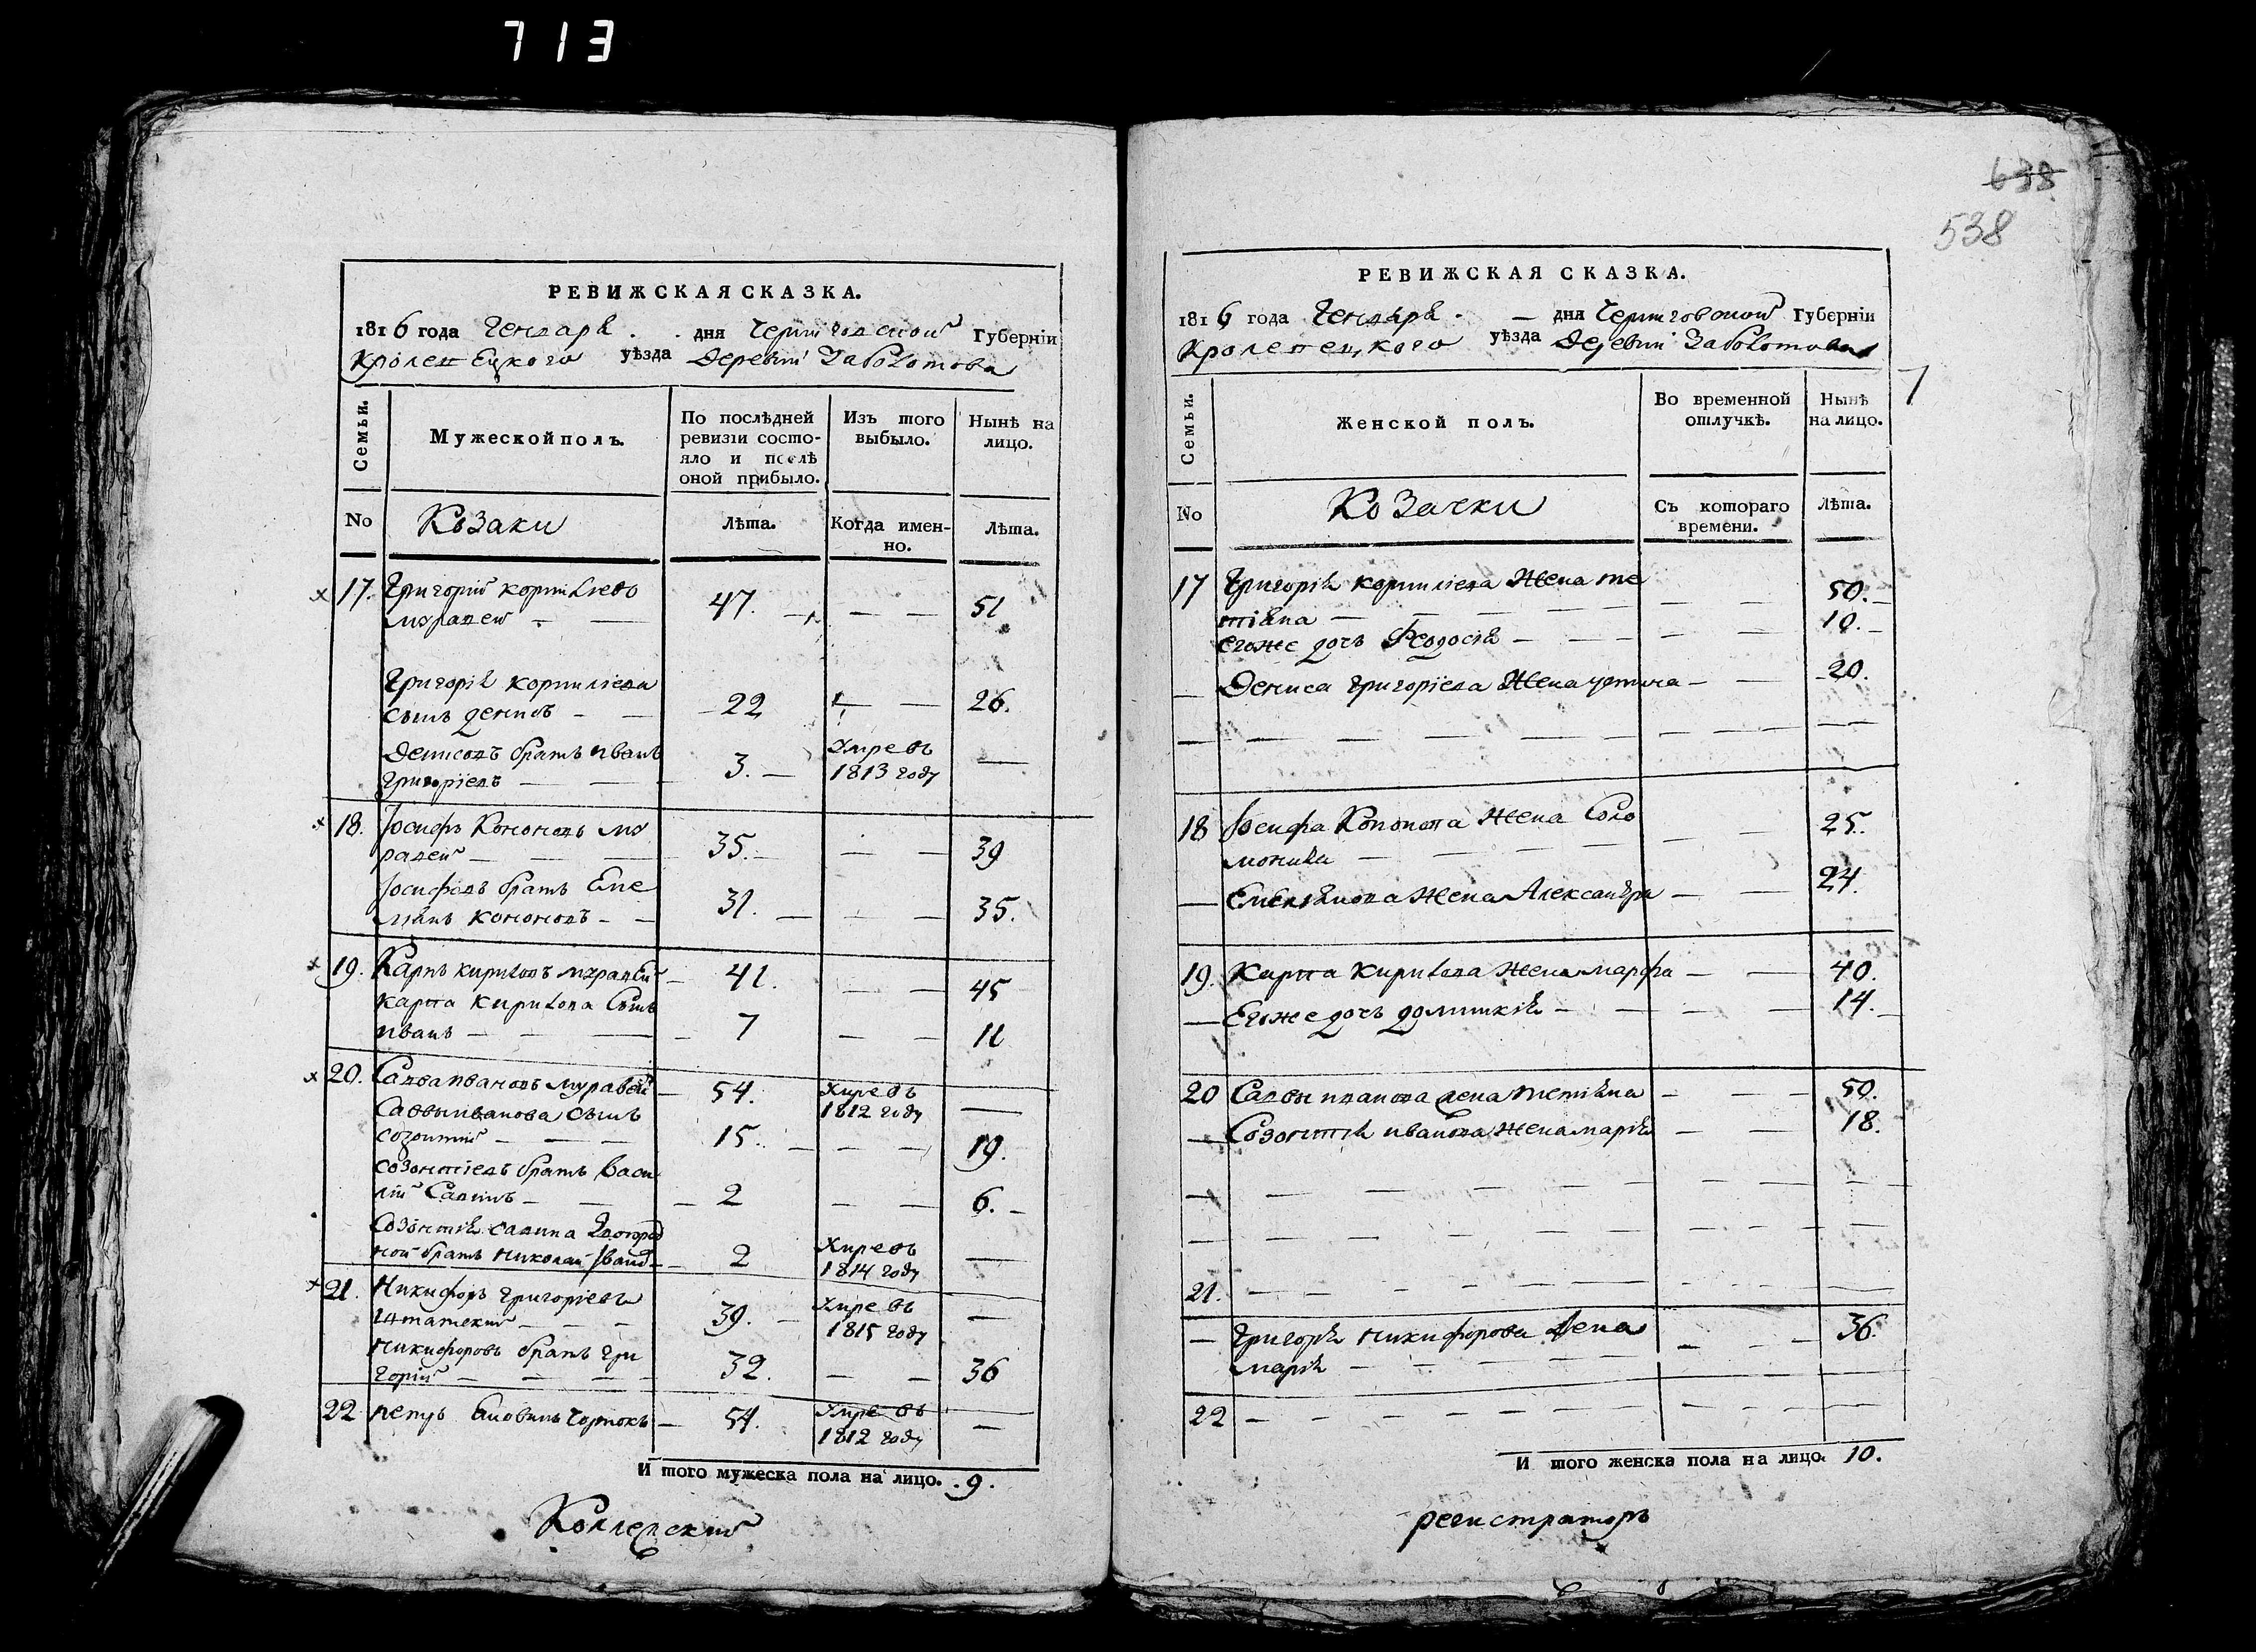 713
638
538
РЕВИЖСКАЯ СКАЗКА.
1816 года Генваря дня Черниговской Губерніи
Кролевецкого уѣзда Деревни Заболотова
Семьи.
Мужеской полъ.
По послѣдней ревизіи состояло и послѣ оной прибыло.
Изъ того выбыло.
Нынѣ на лицо.
No
Козаки
Лѣта.
Когда именно.
Лѣта.
17. Григорій корнилиевъ 47. 51
Григорія корниліева
сынъ денисъ 22 26.
Денисовъ братъ иванъ умре въ
григоріевъ 3. 1813 году
18. Іосифъ Кононовъ му
равей 35. 39
Іосифовъ братъ Еме
лянъ кононовъ 31. 35.
19. Карпъ кириловъ муравей 41. 45
карпа кирилова сынъ
иванъ 7 11
20. Савва ивановъ муравей 54. умре въ 1812 году
Саввы иванова сынъ
созонтій 15. 19.
созонтіевъ братъ Васи
лій Савинъ 2 6.
Созонтія савина двоюрод
ной братъ николай 2 умре въ 1814 году
21. Никифоръ григоріевъ
39. умре въ 1815 году
Никифоровъ братъ гри
горій 32. 36
22 петръ 54. умре въ 1812 году
И того мужеска пола на лицо. 9.
Коллежский
РЕВИЖСКАЯ СКАЗКА.
1816 года Генваря дня Черниговской Губерніи
Кролевецкого уѣзда Деревни Заболотова
7
Семьи.
Женской полъ.
Во временной отлучкѣ.
Нынѣ на лицо.
No
Козачки
Съ котораго времени.
Лѣта.
17 Григорія корниліева жена те
тіяна 50.
егоже дочь Феодосія 10.
Дениса григоріева жена устина 20.
18 Іосифа Кононова жена Соло
монія 25.
Емеляна жена Александра 24.
19. Карпа кирилова жена марфа 40.
Егоже дочь домникія 14.
20 Саввы иванова жена тетіяна 50.
Созонтія иванова жена марія 18.
21.
Григорія никифорова жена 36.
марія
22
И того женска пола на лицо. 10.
регистраторъ